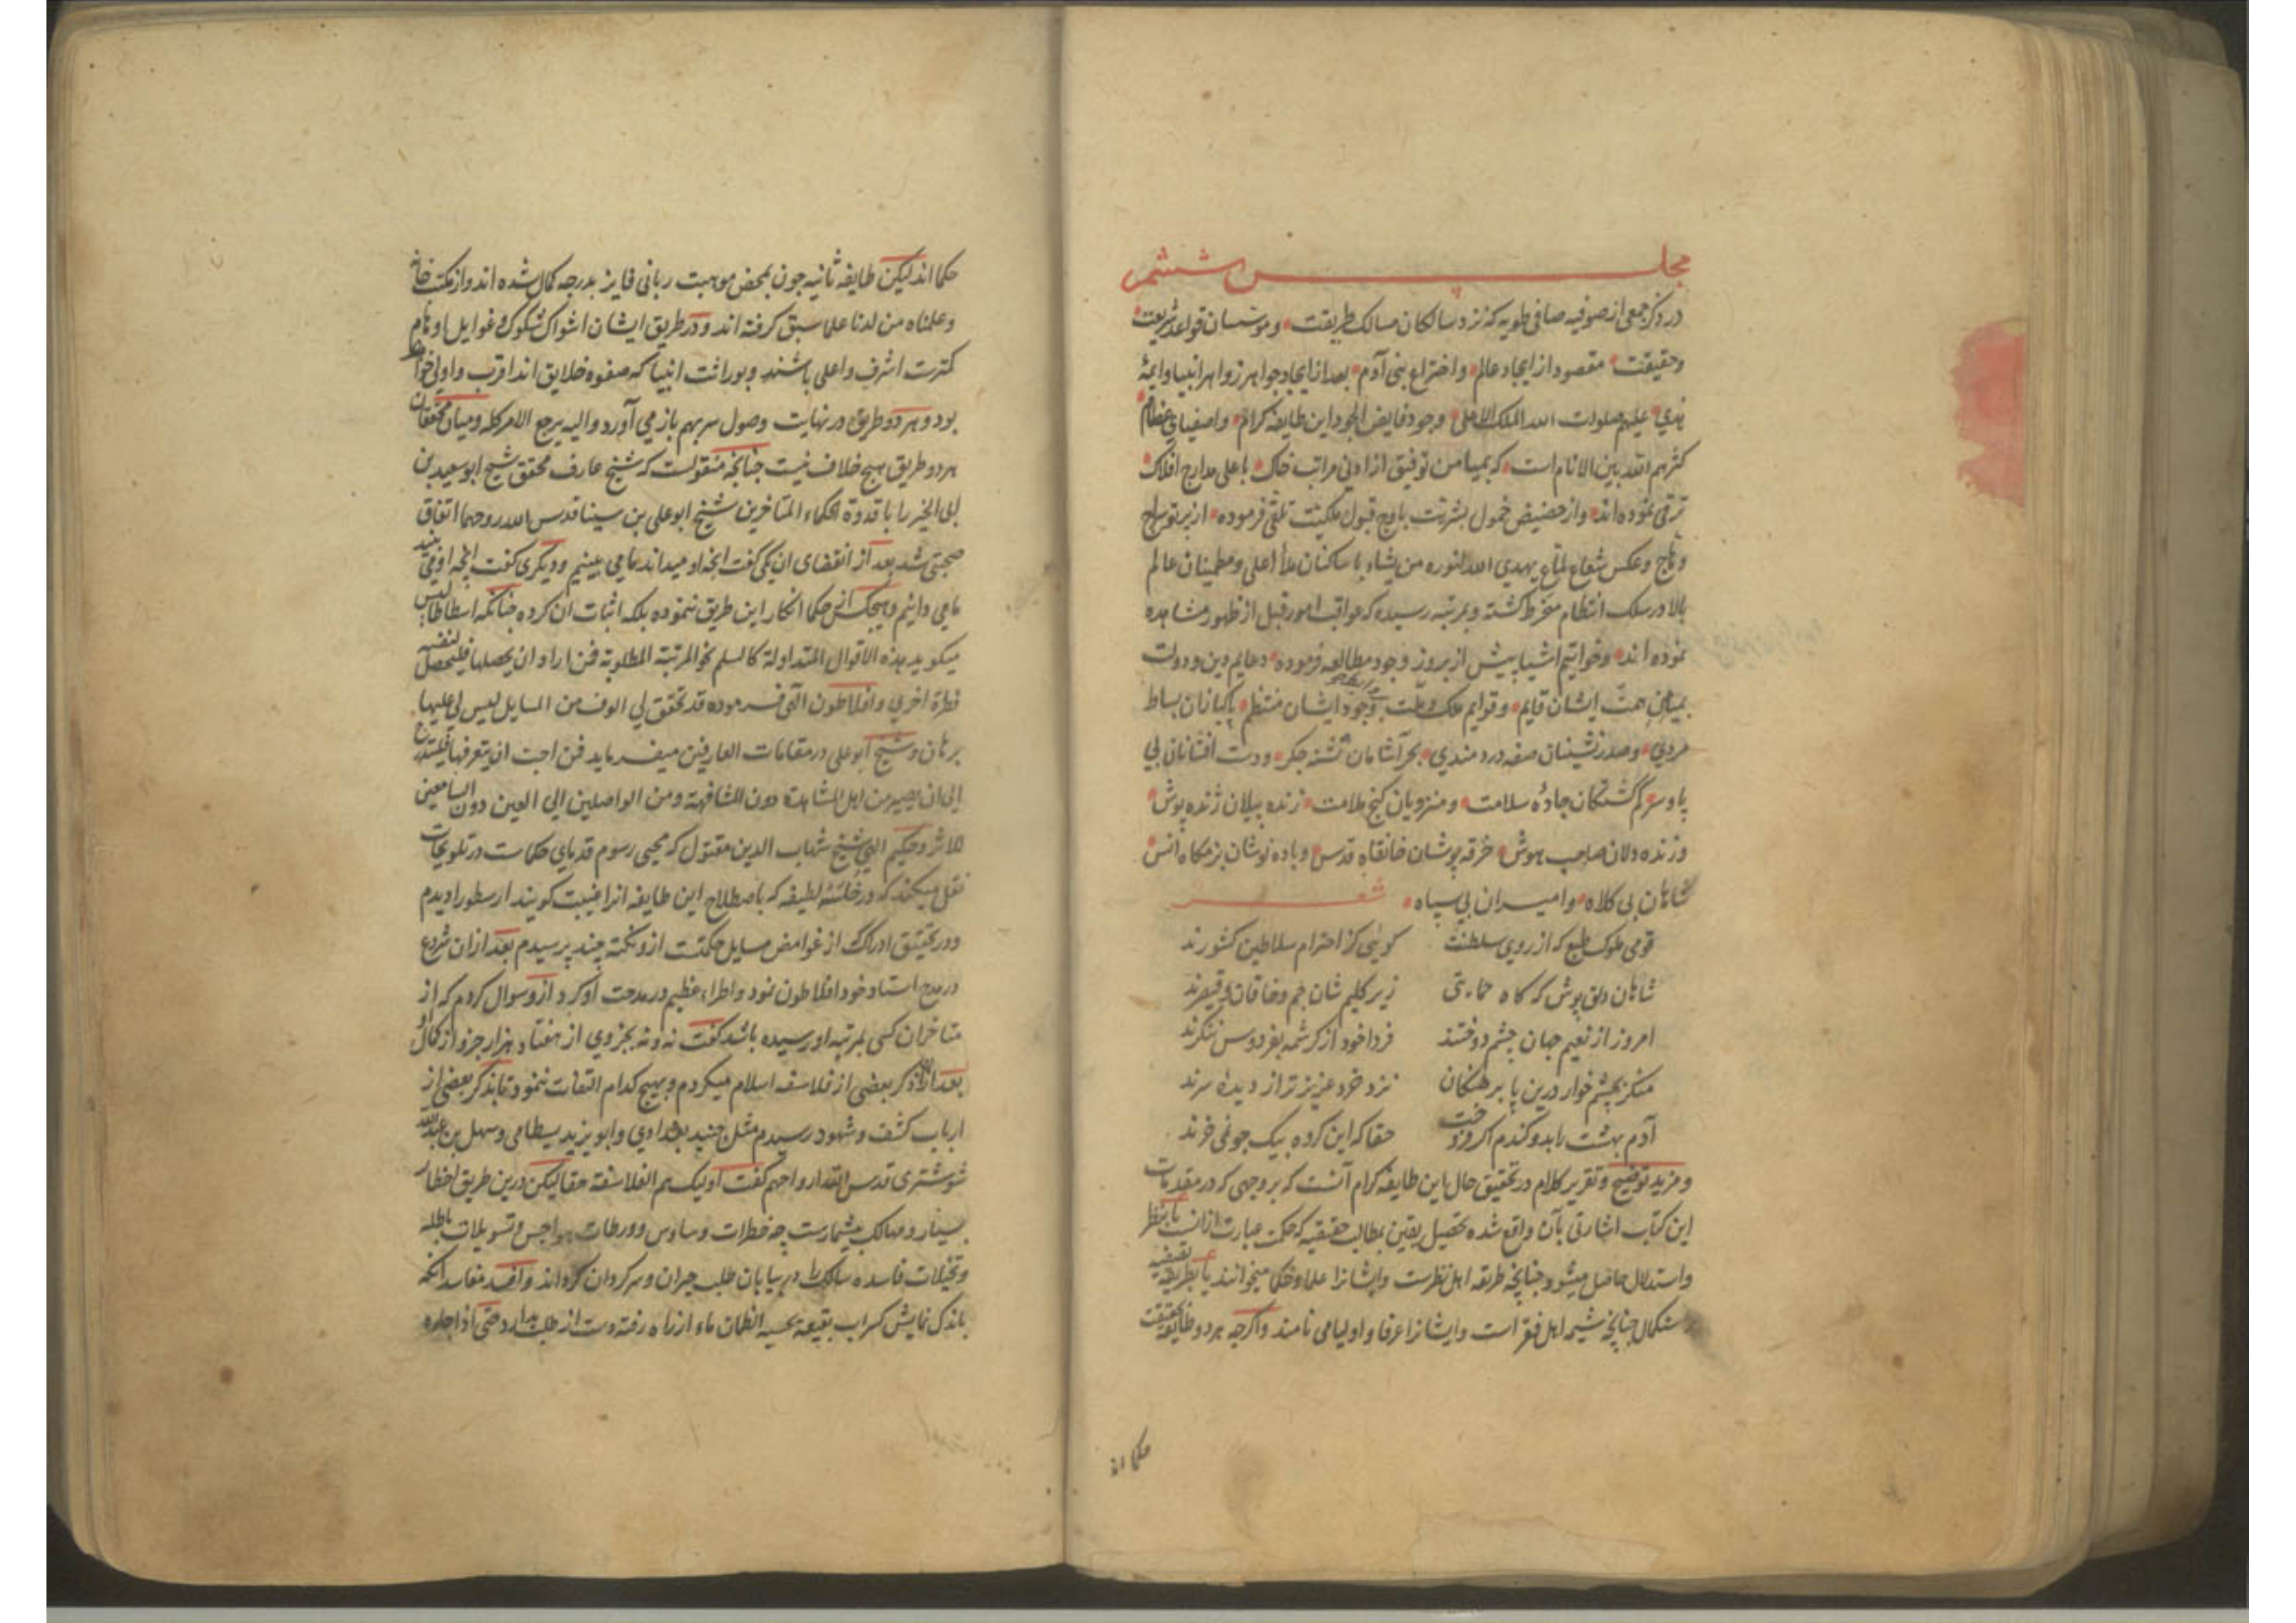 مجلس ششم
در ذکر جمعی از صوفیه صافی طویه که نزد سالکان مسالک طریقت و موسسان قواعد شریعت
و حقیقت مقصود از ایجاد عالم و اختراع بنی آدم بعد از ایجاد جواهر زواهر انبیا و ایمهٔ
هدی علیهم صلوات الله الملک الاعلی وجود فایض الجود این طایفهٔ کرام و اصفیای عظام
کثرهم الله بین الانام است که بمیامن توفیق از ادنی مراتب خاک باعلی مدارج افلاک
ترقی نموده اند و از حضیض خمول بشریت باوج قبول ملکیت تلقی فرموده از پرتو سراج
وهاج و عکس شعاع لماع یهدی الله لنوره من یشاء با ساکنان ملأ اعلی و مطمینان عالم
بالا در سلک انتظام منخرط کشته و بمرتبه رسیده که عواقب امور قبل از ظهور مشاهده
نموده اند و خواتیم اشیا پیش از بروز وجود مطالعه فرموده دعایم دین و دولت
بمیامن همت ایشان قایم و قوایم ملک و ملت بواسطه وجود ایشان منتظم پاکبازان بساط
مردی و صدرنشینان صفه دردمندی بحرآشامان تشنه جکر و دست افشانان بی
پا و سر کم کشتکان جادهٔ سلامت و منزویان کنج ملامت زنده پیلان ژنده پوش
و زنده دلان صاحب هوش خرقه پوشان خانقاه قدس و باده نوشان بزمکاه انس
شاهان بی کلاه و امیران بی سپاه شعر
قومی ملوک طبع که از روی سلطنت کویی کز احترام سلاطین کشورند
شاهان دلق پوش که کاه حمایتی زیر کلیم شان جم و خاقان و قیصرند
امروز از نعیم جهان چشم دوختند فردا خود از کرشمه بفردوس ننکرند
منکر بچشم خوار درین پا برهنکان نزد خرد عزیزتر از دیدهٔ سرند
آدم بهشت را بدو کندم اکر فروخت حقا که این کروه بیک جو نمی خرند
و مزید توضیح و تقریر کلام در تحقیق حال این طایفه کرام آنست که بر وجهی که در مقدمات
این کتاب اشارتی بآن واقع شده تحصیل یقین بمطالب حقیقیه که حکمت عبارت ازانست یا بنظر
و استدلال حاصل میشود چنانچه طریقه اهل نظرست و ایشانرا علما و حکما میخوانند یا بطریقه تصفیه
و استکمال چنانچه شیمهٔ اهل فقر است و ایشانرا عرفا و اولیا می نامند و اکرچه هر دو طایفه بحقیقت
حکما اند
حکما اند لیکن طایفه ثانیه چون بمحض موهبت ربانی فایز بدرجه کمال شده اند و از مکتب خانه
و علمناه من لدنا علما سبق کرفته اند و در طریق ایشان اشواک شکوک و غوایل اوهام
کمترست اشرف و اعلی باشند و بوراثت انبیا که صفوه خلایق اند اقرب و اولی خواهند
بود و هر دو طریق در نهایت وصول سر بهم باز می آورد و الیه یرجع الامر کله و میان محققان
هر دو طریق هیچ خلاف نیست چنانچه منقولست که شیخ عارف محقق شیخ ابو سعید بن
ابی الخیر را با قدوة الحکماء المتاخرین شیخ ابو علی بن سینا قدس الله روحهما اتفاق
صحبتی شد بعد از انقضای ان یکی کفت انچه او میداند ما می بینیم و دیکری کفت انچه او می بیند
ما می دانیم و هیچکس از حکما انکار این طریق ننموده بلکه اثبات ان کرده چنانکه ارسطاطالیس
میکوید هذه الاقوال المتداولة کالسلم نحو المرتبة المطلوبة فمن اراد ان یحصلها فلیحصل لنفسه
فطرة اخری و افلاطون الهی فرموده قد تحقق لی الوف من المسایل لیس لی علیها
برهان و شیخ ابو علی در مقامات العارفین میفرماید فمن احب ان یتعرفها فلیتدرج
الی ان یصیر من اهل المشاهدة دون المشافهة و من الواصلین الی العین دون السامعین
للاثر و حکیم الهی شیخ شهاب الدین مقتول که محیی رسوم قدمای حکماست در تلویحات
نقل میکند که در خلسهٔ لطیفه که باصطلاح این طایفه انرا غیبت کویند ارسطو را دیدم
و در تحقیق ادراک از غوامض مسایل حکمت ازو نکته چند پرسیدم بعد ازان شروع
در مدح استاد خود افلاطون نمود و اطراء عظیم در مدحت او کرد ازو سوال کردم که از
متاخران کسی بمرتبه او رسیده باشد کفت نه و نه بجزوی از هفتاد هزار جزو از کمال او
بعد ازان ذکر بعضی از فلاسفه اسلام میکردم و بهیچ کدام التفات ننمود تا بذکر بعضی از
ارباب کشف و شهود رسیدم مثل جنید بغدادی و ابو یزید بسطامی و سهل بن عبدالله
شوشتری قدس الله ارواحهم کفت اولیک هم الفلاسفة حقا لیکن درین طریق اخطار
بسیار و مهالک بیشمارست چه خطرات وساوس و ورطات هواجس و تسویلات باطله
و تخیلات فاسده سالک را در بیابان طلب حیران و سرکردان کرداند و افسد مفاسد آنکه
باندک نمایش کسراب بقیعة یحسبه الظمان ماء از راه رفته دست از طلب بدارد حتی اذا جاءه